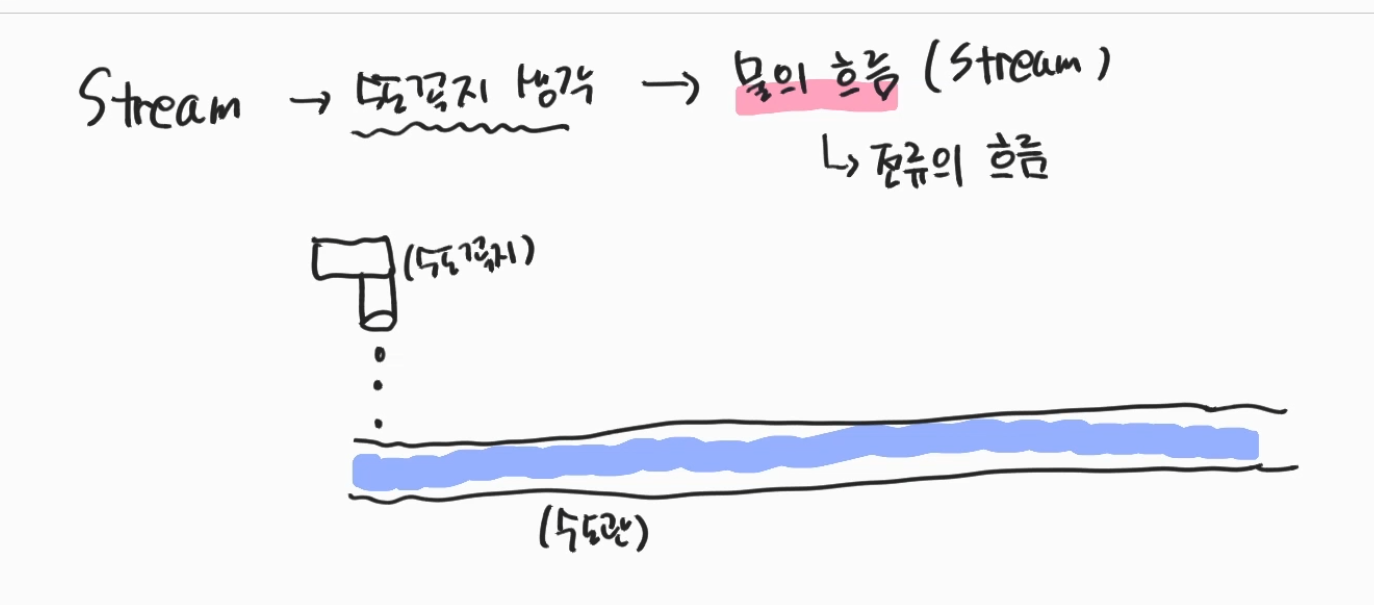 Stream → 또꼭지 생각 → 물의 흐름 (Stream)
↳ 전류의 흐름
(수도꼭지)
(수도관)